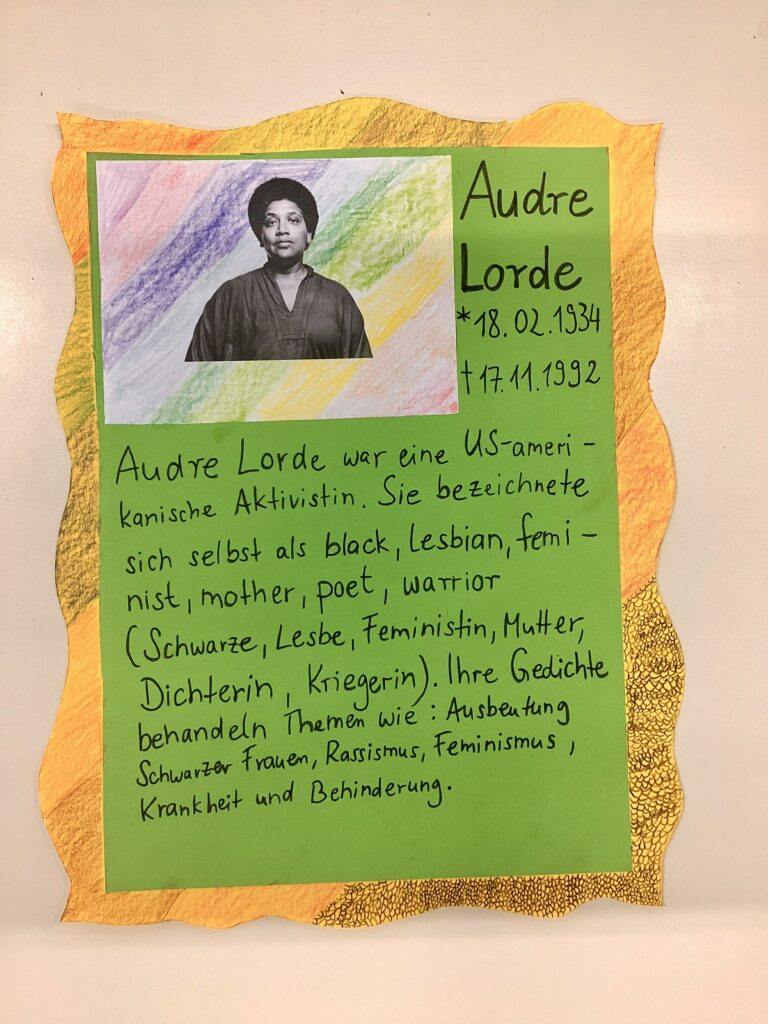 Audre
Lorde
*18.02.1934
†17.11.1992
Audre Lorde war eine US-ameri-
kanische Aktivistin. Sie bezeichnete
sich selbst als black, Lesbian, femi-
nist, mother, poet, warrior
(Schwarze, Lesbe, Feministin, Mutter,
Dichterin, Kriegerin). Ihre Gedichte
behandeln Themen wie: Ausbeutung
Schwarzer Frauen, Rassismus, Feminismus,
Krankheit und Behinderung.